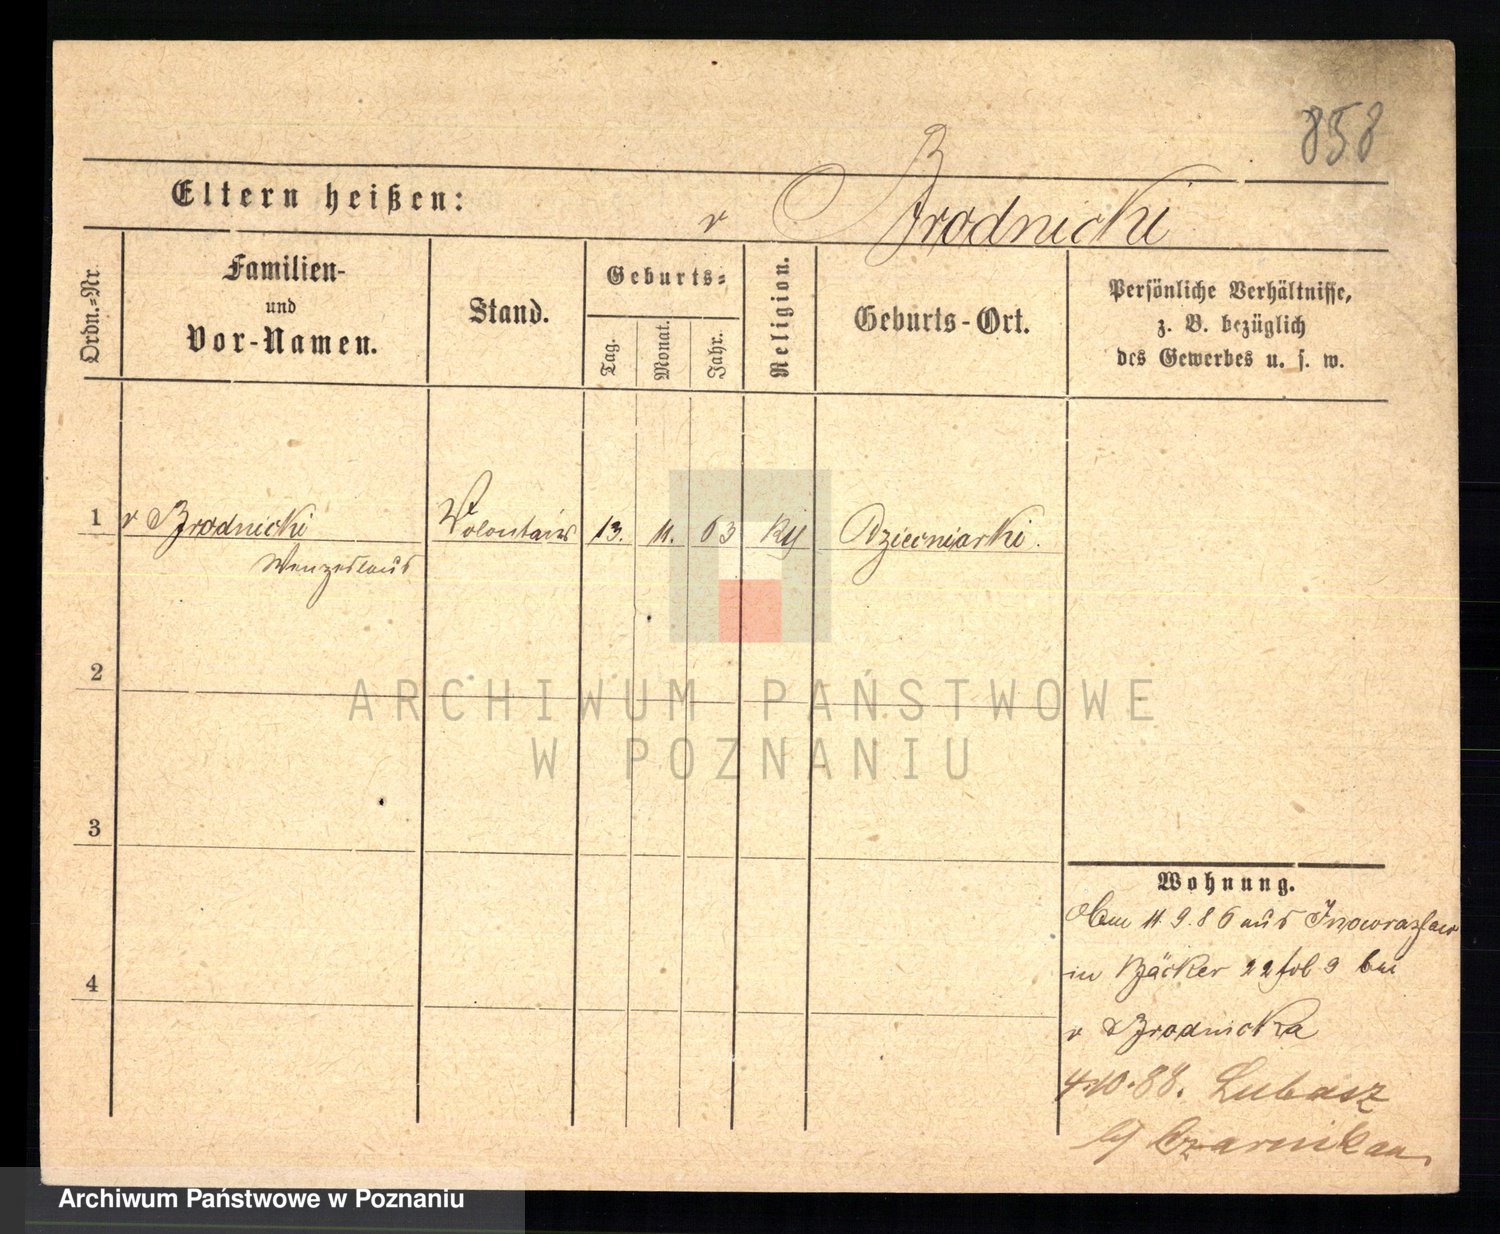 858
Eltern heißen:
v Brodnicki
Ordn.=Nr.
Familien-
und
Vor-Namen.
Stand.
Geburts=
Tag.
Monat.
Jahr.
Religion.
Geburts-Ort.
Persönliche Verhältnisse,
z. B. bezüglich
des Gewerbes u. s. w.
1 v Brodnicki Volontair 13. 11. 63 Dziecmiarki.
Wenzeslaus
2
ARCHIWUM PAŃSTWOWE
W POZNANIU
3
4
Wohnung.
11.9.86 aus Inowrazlaw
in Bäcker 22 fol 9 bei
v Brodnicka
4.10.88. Lubasz
Czarnikau
Archiwum Państwowe w Poznaniu